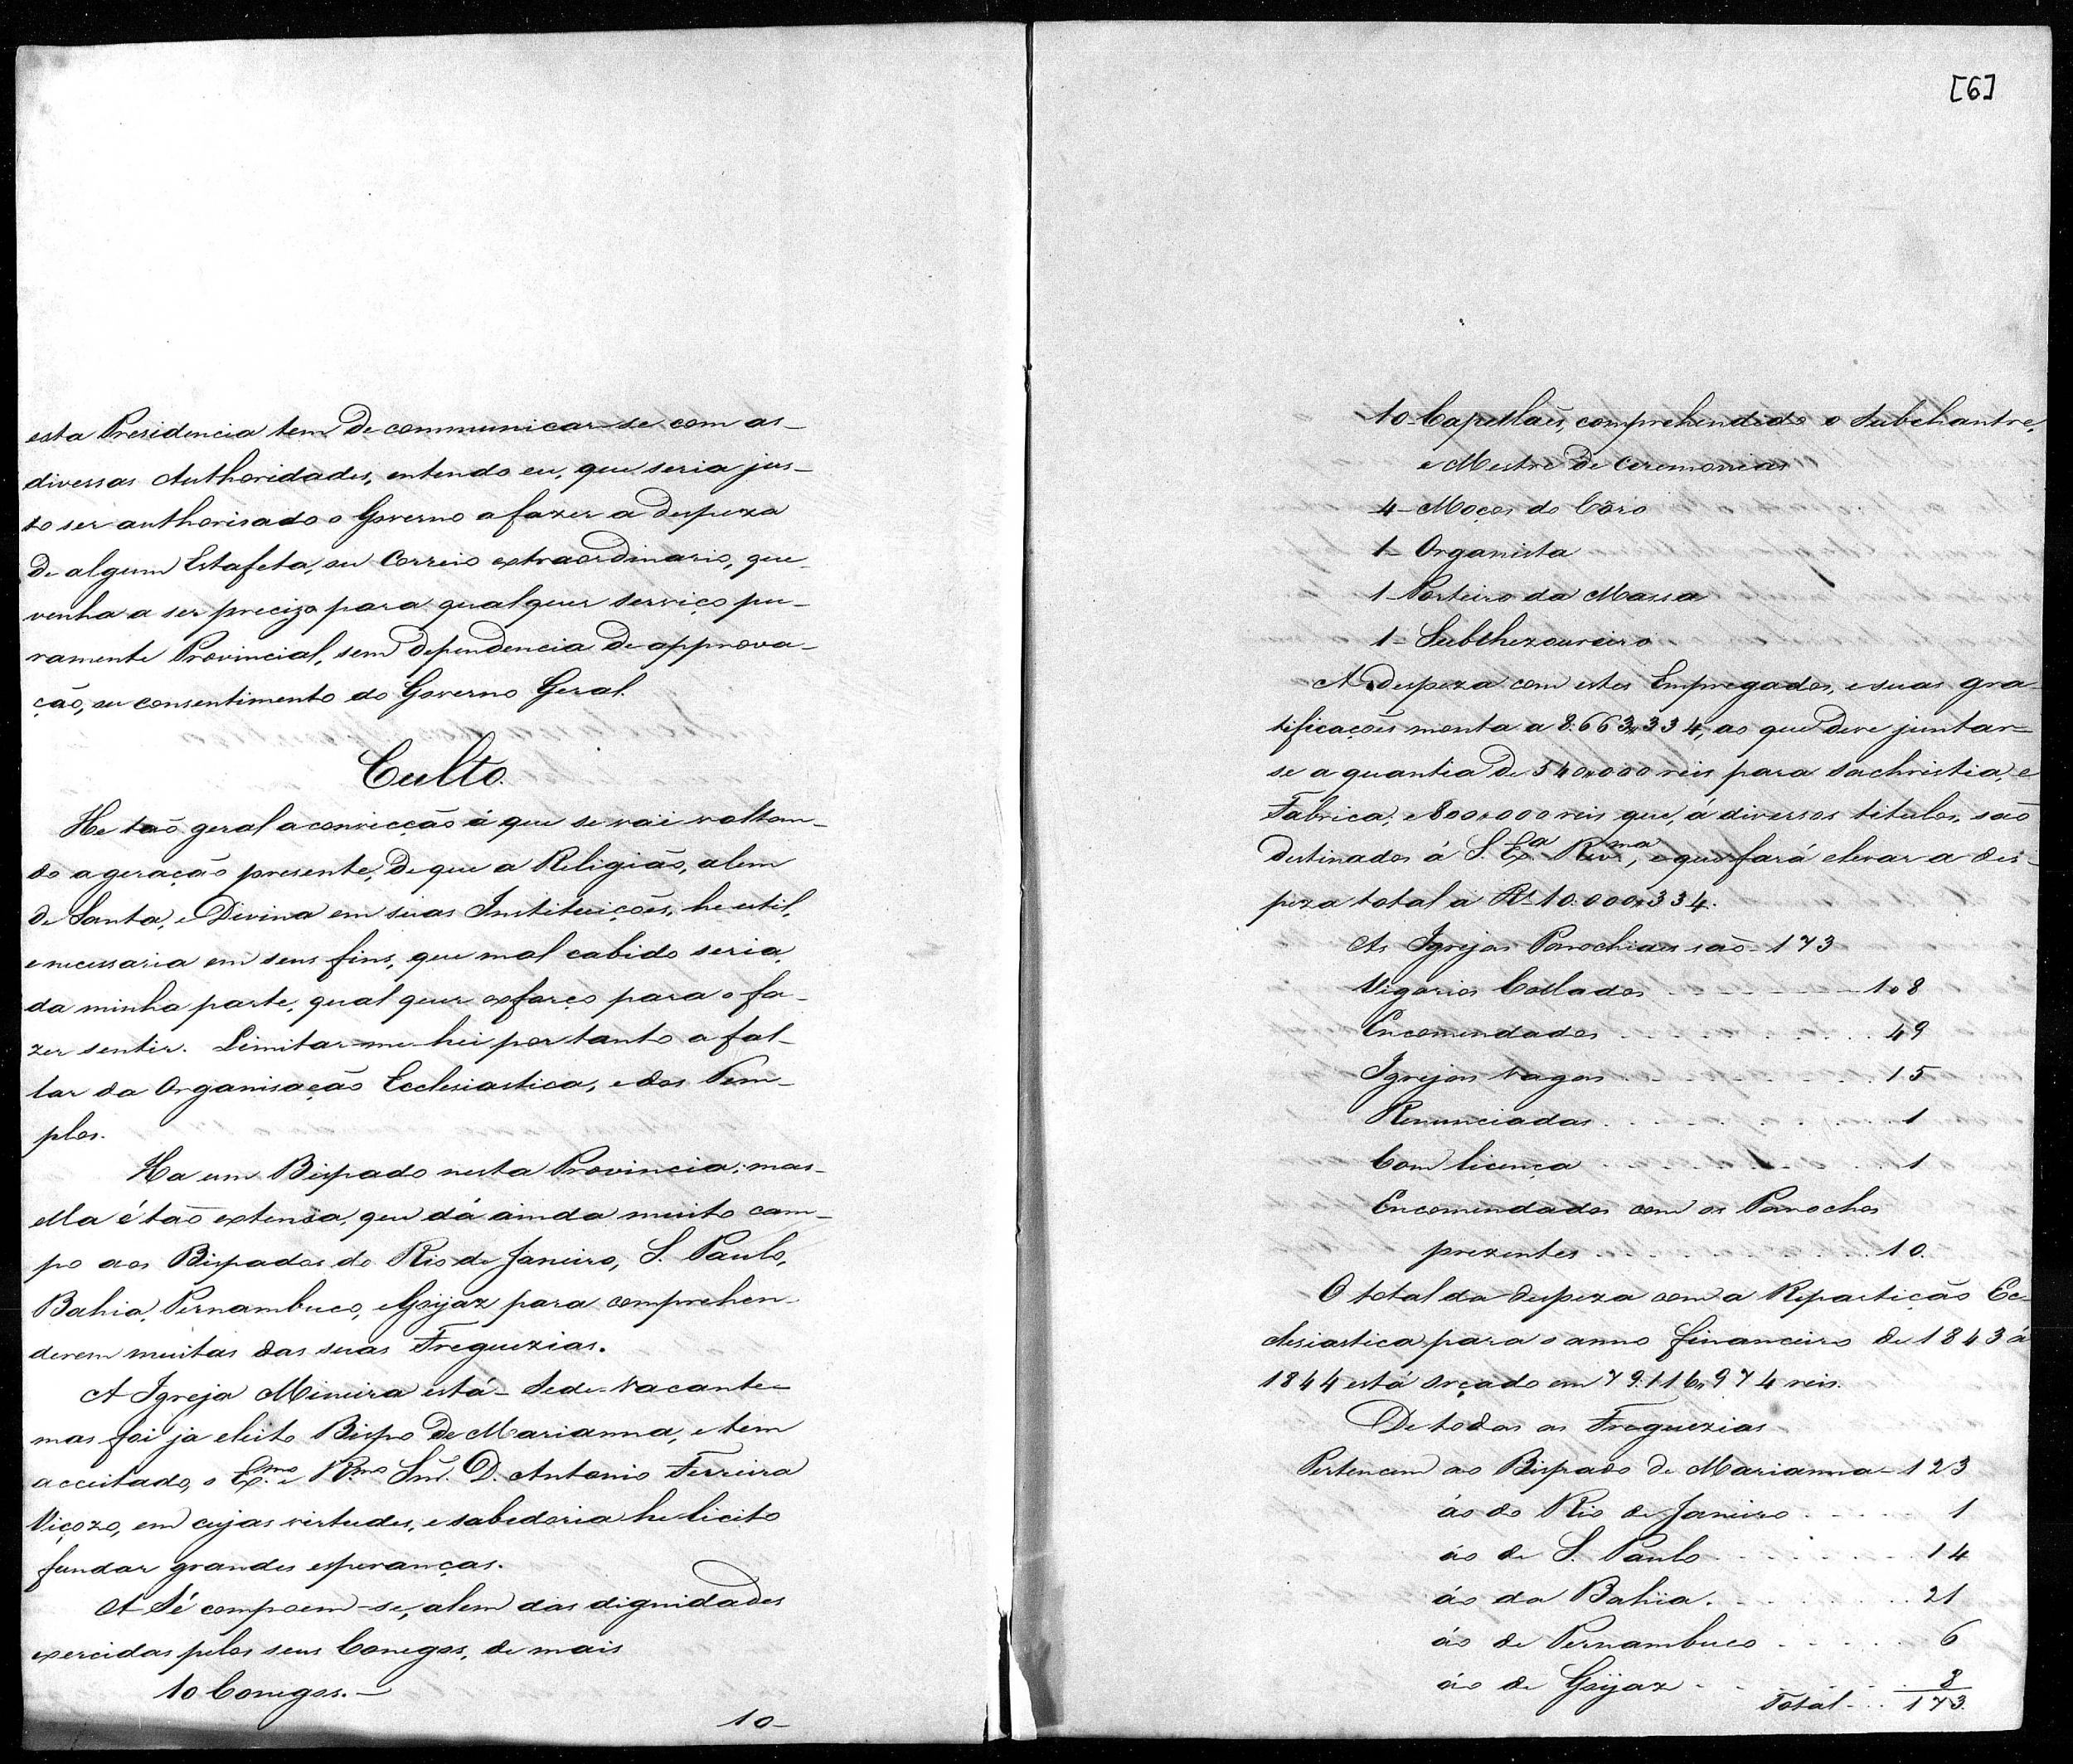 esta Presidencia tem de communicar-se com as
diversas Authoridades, entendo eu, que seria jus-
to ser authorisado o Governo a fazer a despeza
de algum Estafeta, ou Correio extraordinario, que
venha a ser precizo para qualquer serviço pu-
ramente Provincial, sem dependencia de approva-
ção, ou consentimento do Governo Geral.
Culto.
He taõ geral a convicção á que se vai voltan-
do a geração presente, de que a Religião, alem
de Santa, e Divina em suas Instituições, he util,
e necessaria em seus fins, que mal cabido seria,
da minha parte, qualquer exforço para o fa-
zer sentir. Limitar-me-hei por tanto a fal-
lar da Organisação Ecclesiastica, e dos Tem-
plos.
Ha um Bispado nesta Provincia; mas
ella é taõ extensa, que dá ainda muito cam-
po aos Bispados do Rio de Janeiro, S. Paulo,
Bahia, Pernambuco, e Goÿaz para comprehen-
derem muitas das suas Freguezias.
A Igreja Mineira está - Sede-Vacante -
mas foi já eleito Bispo de Marianna, e tem
acceitado, o Ex.mo e R.mo Snr. D. Antonio Ferreira
Viçozo, em cujas virtudes, e sabedoria he licito
fundar grandes esperanças.
A Sé compoem-se, alem das dignidades
exercidas pelos seus Conegos, de mais
10 Conegos.-
10-
[6]
10-Capellaẽs, comprehendido o Subchantre,
e Mestre de Ceremonias
4-Moços do Côro
1-Organista
1-Porteiro da Massa
1-Subthezoureiro.
A despeza com estes Empregados, e suas gra-
tificaçoẽs monta a 8:663,,334, ao que deve juntar-
se a quantia de 540,,000 reis para Sachristia, e
Fabrica, e 800,,000 reis que, á diversos titulos, saõ
destinados á S. Ex.a Rev.ma, o que fará elevar a des-
peza total a Rs 10:000,,334.
As Igrejas Parochiaes saõ - 173
Vigarios Collados - - - - - 108
Encomendados . . . . . . . . 49
Igrejas Vagas . . . . . . . . 15
Renunciadas . . . . . . . . . 1
Com licença . . . . . . . . . 1
Encomendados com os Parochos
prezentes . . . . . . . . . . 10.
O total da despeza com a Repartição Ec-
clesiastica para o anno financeiro de 1843 á
1844 está orçado em 79:116,,974 reis.
De todas as Freguezias
Pertencem ao Bispado de Marianna - 123
áo do Rio de Janeiro . . . . . 1
áo de S. Paulo . . . . . . . 14
áo da Bahia . . . . . . . . 21
áo de Pernambuco . . . . . . 6
áo de Goÿaz - . . . . . . . 8
Total - . . 173.